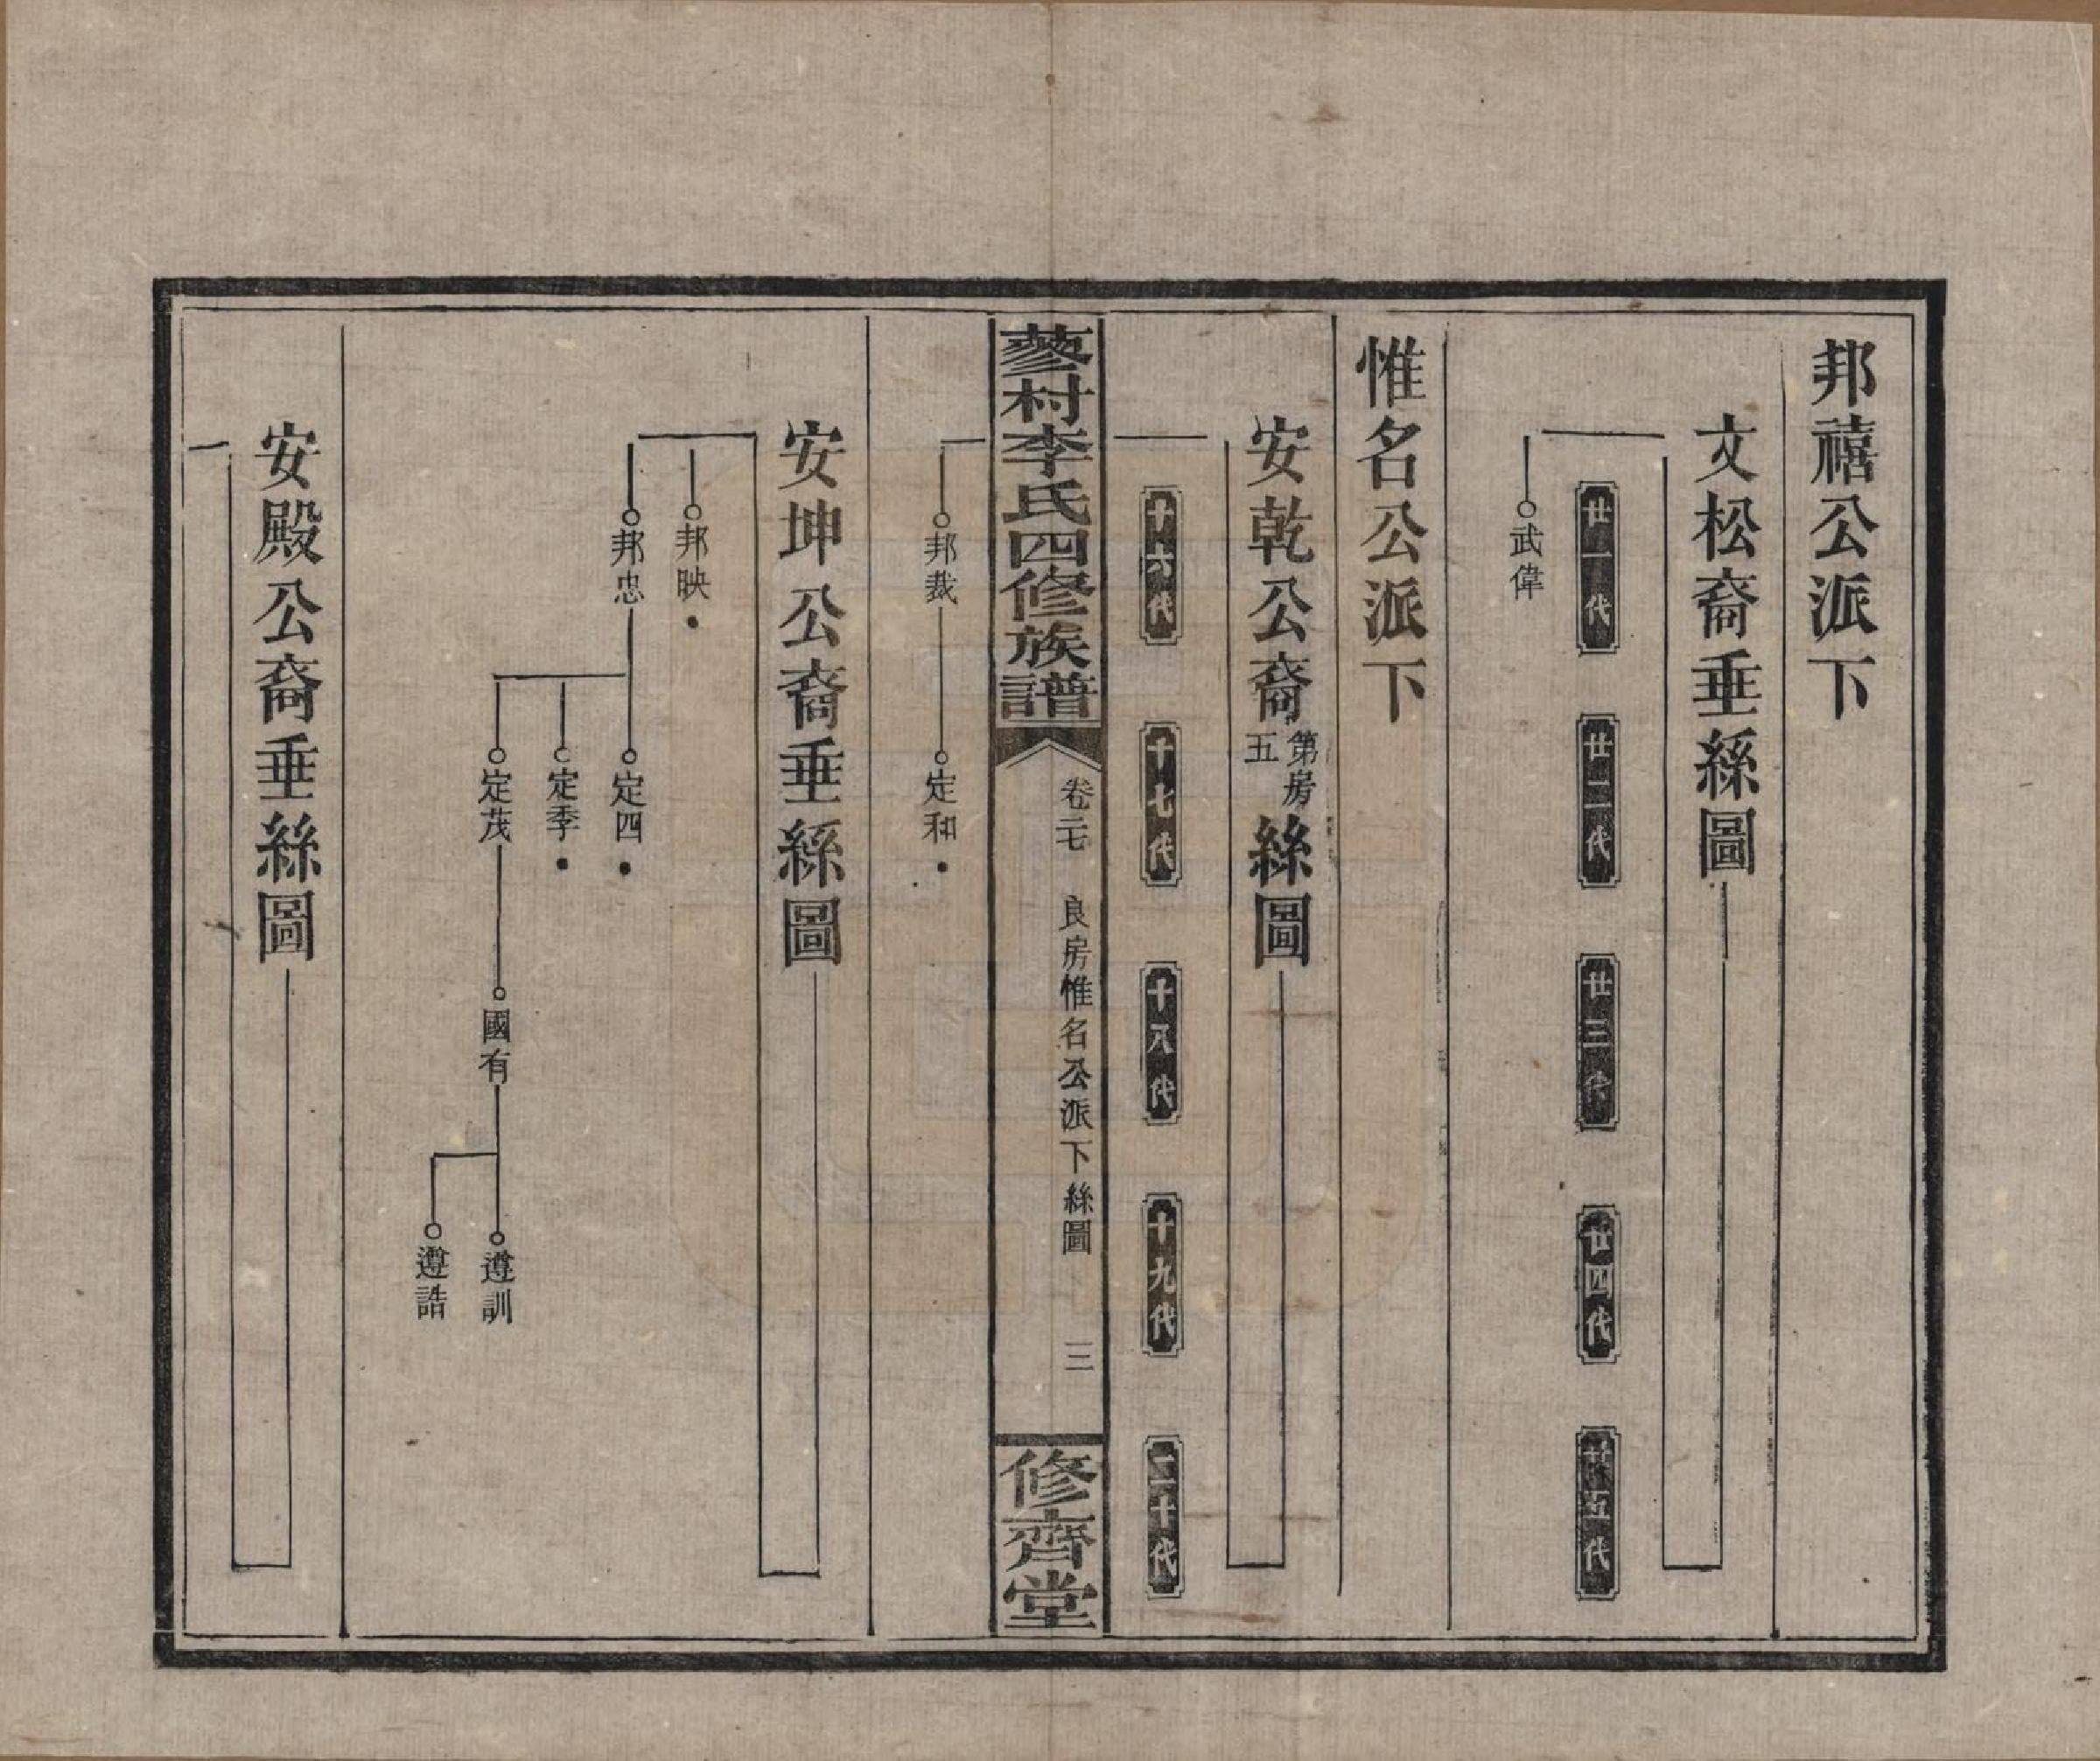 邦禧公派下
文松裔垂絲圖
廿一代
廿二代
廿三代
廿四代
廿五代
武偉
惟名公派下
安乾公裔第五房絲圖
十六代
十七代
十八代
十九代
二十代
蓼村李氏四修族譜
卷二七
良房惟名公派下絲圖
三
修齊堂
邦裁
定和
安坤公裔垂絲圖
邦映
邦忠
定四
定季
定茂
國有
遵訓
遵誥
安殿公裔垂絲圖